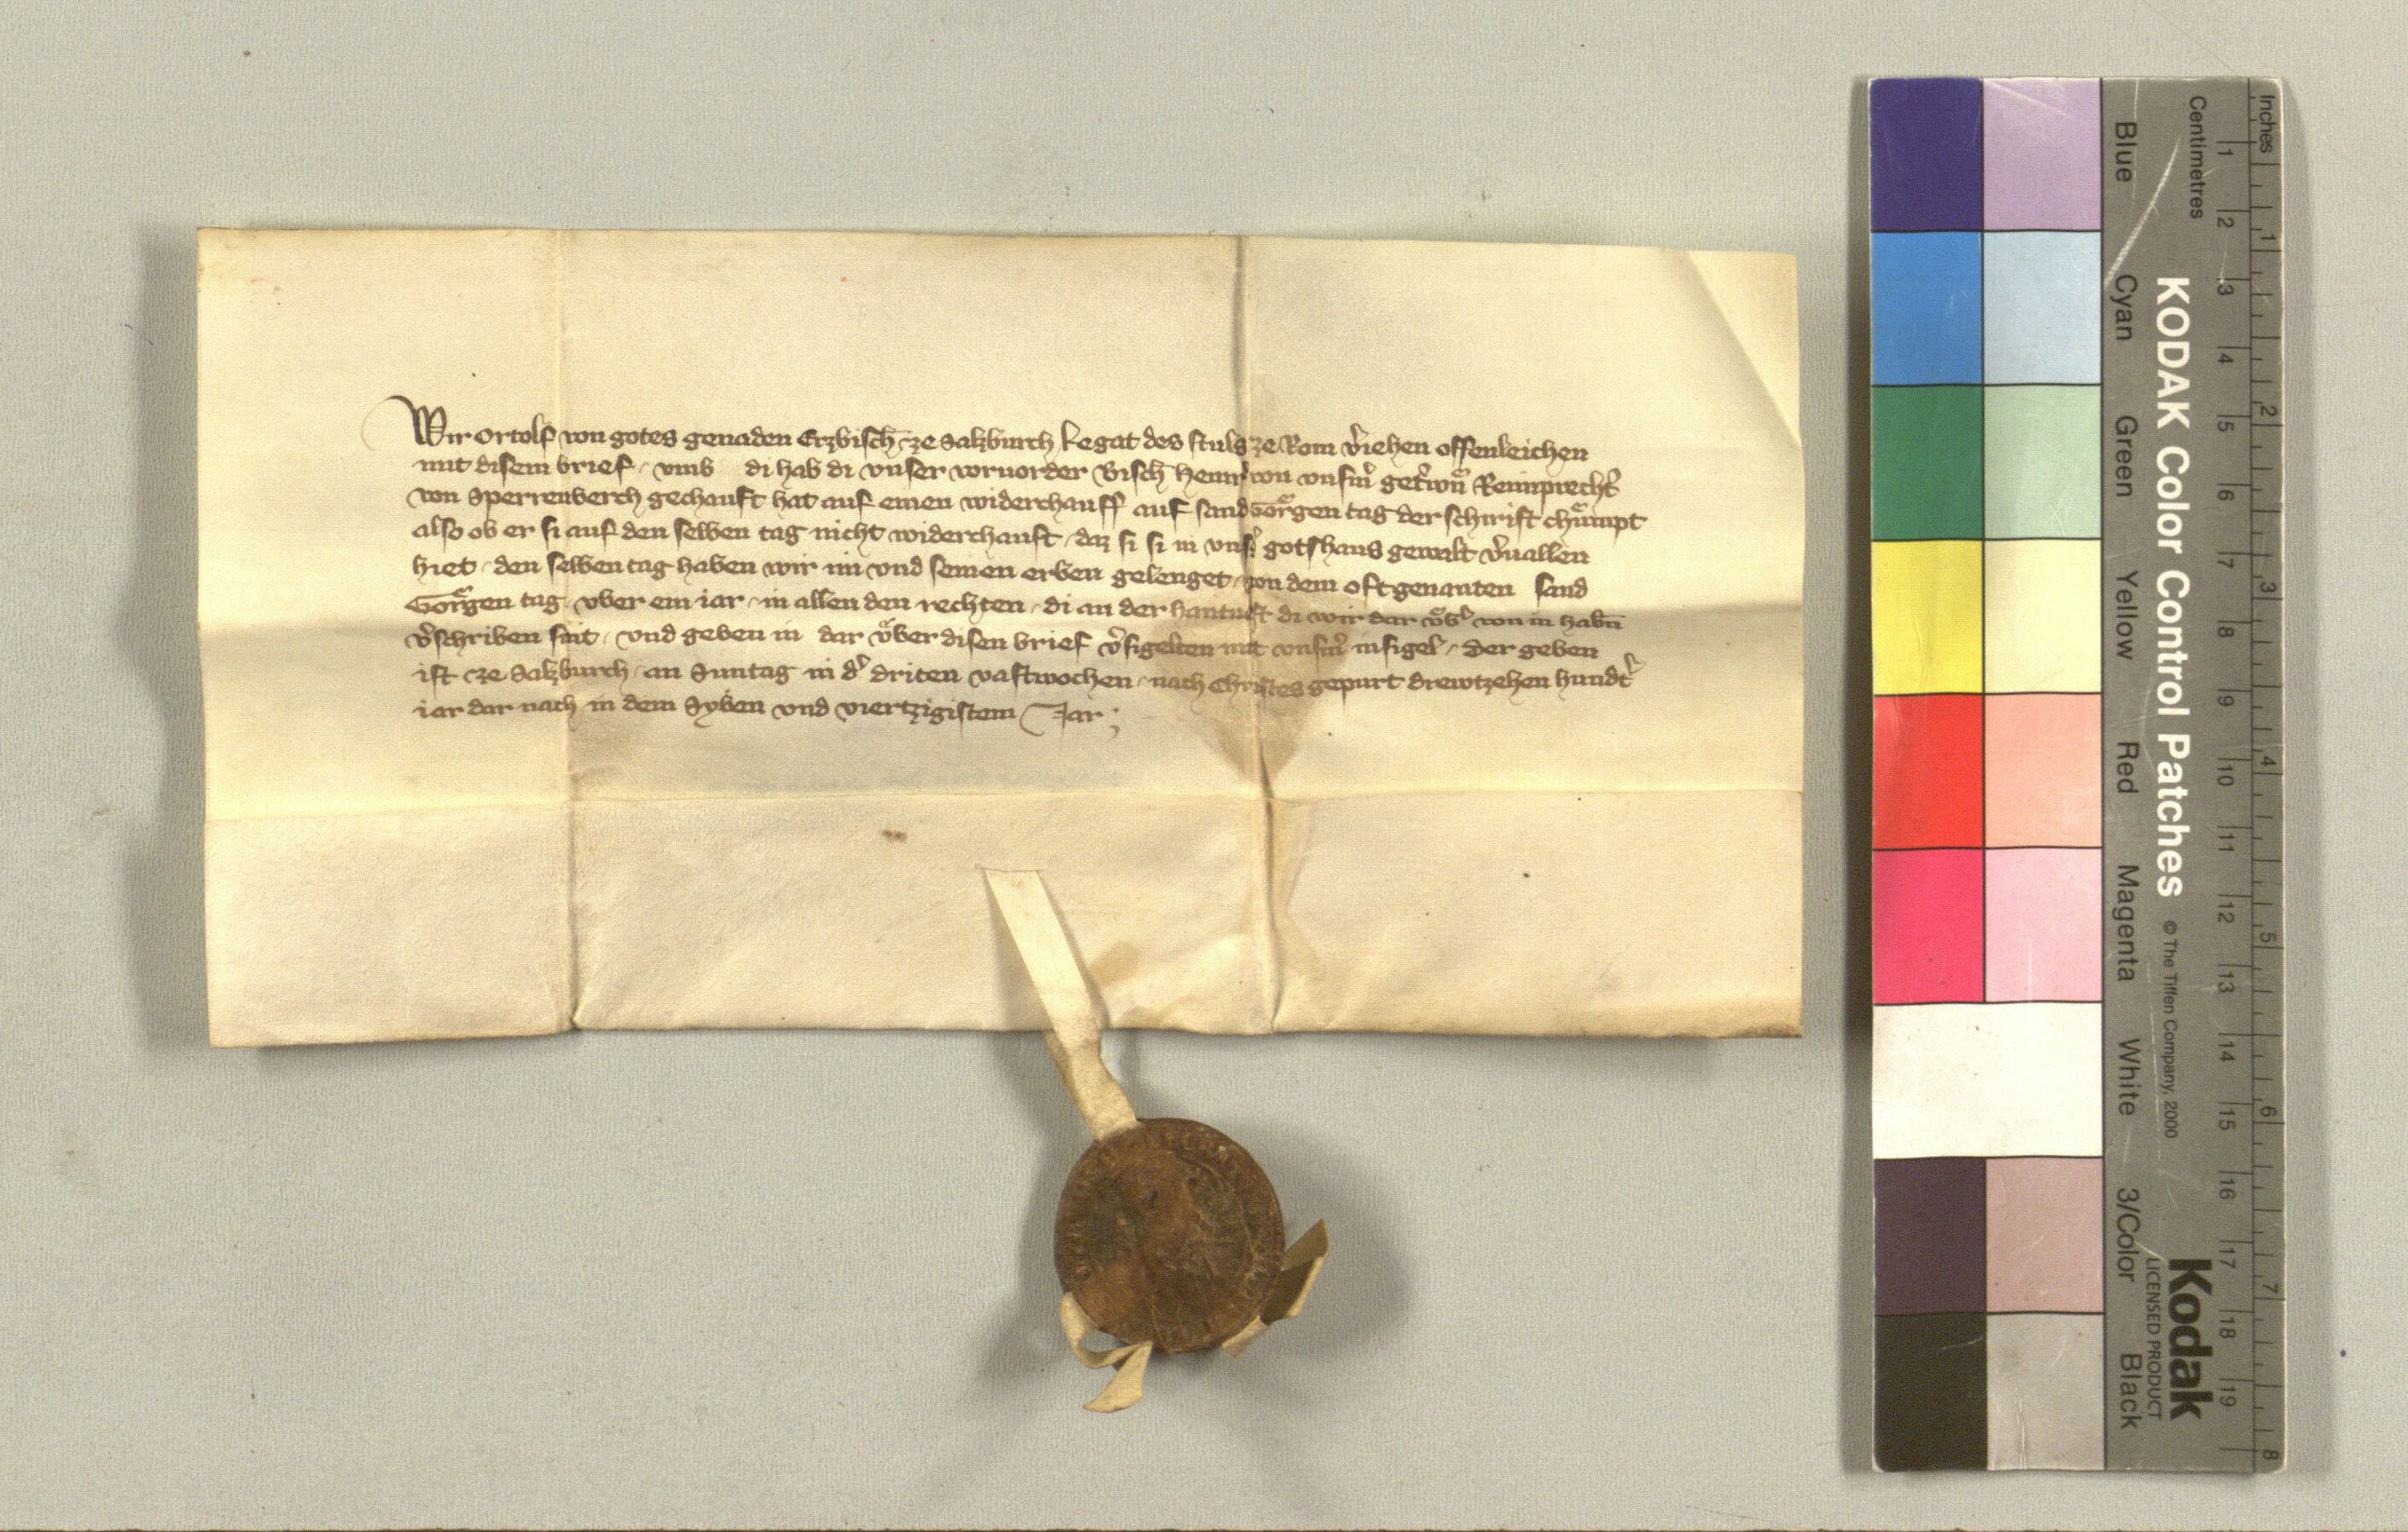 Wir Ortolf von gotes genaden Erzbisch ze Salzburch Legat des stuls ze Rom v̾iehen offenleichen
mit disem brief · vmb di hab di vnser voruorder Bisch Heinr̾ von vnsm̾ get̾wn̄ Reinprecht̾
von Sperrenberch gechauft hat auf einen widerchauff auf sand Görgen tag der schirist chümpt
also ob er si auf den selben tag nicht widerchauft · daz si si in vns̾ gotshaus gewalt v̾uallen
hiet · den selben tag haben wir im vnd seinen erben gelenget · von dem oftgenanten sand
Görgen tag · vber ein iar · in allen den rechten · di an der hantueft di wir dar vͤb̾ von in habn̄
v̾schriben sint · vnd geben in dar vͤber disen brief v̾sigelten mit vnsm̾ insigel̾ · der geben
ist ze Salzburch · an Suntag in d̾ driten vastwochen · nach Christes gepurt drewtzehen hundt̾
iar dar nach in dem Syben vnd viertzigistem Jar ;
Inches
Centimetres
1 2 3 4 5 6 7 8
1 2 3 4 5 6 7 8 9 10 11 12 13 14 15 16 17 18 19
KODAK Color Control Patches © The Tiffen Company, 2000
Kodak
LICENSED PRODUCT
Blue Cyan Green Yellow Red Magenta White 3/Color Black